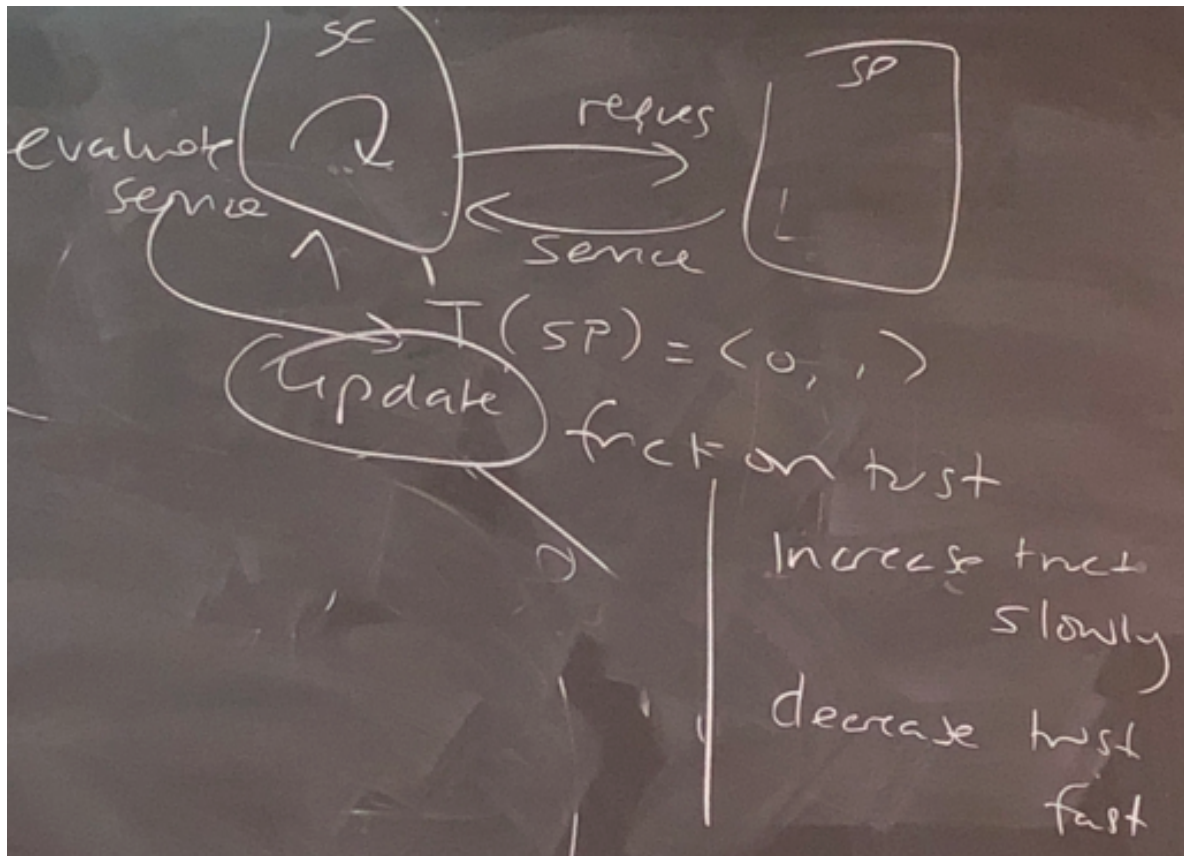 SC
SP
reques
evaluate
service
service
T(SP) = <0, , >
update
friction trust
Increase trust
slowly
decrease trust
fast